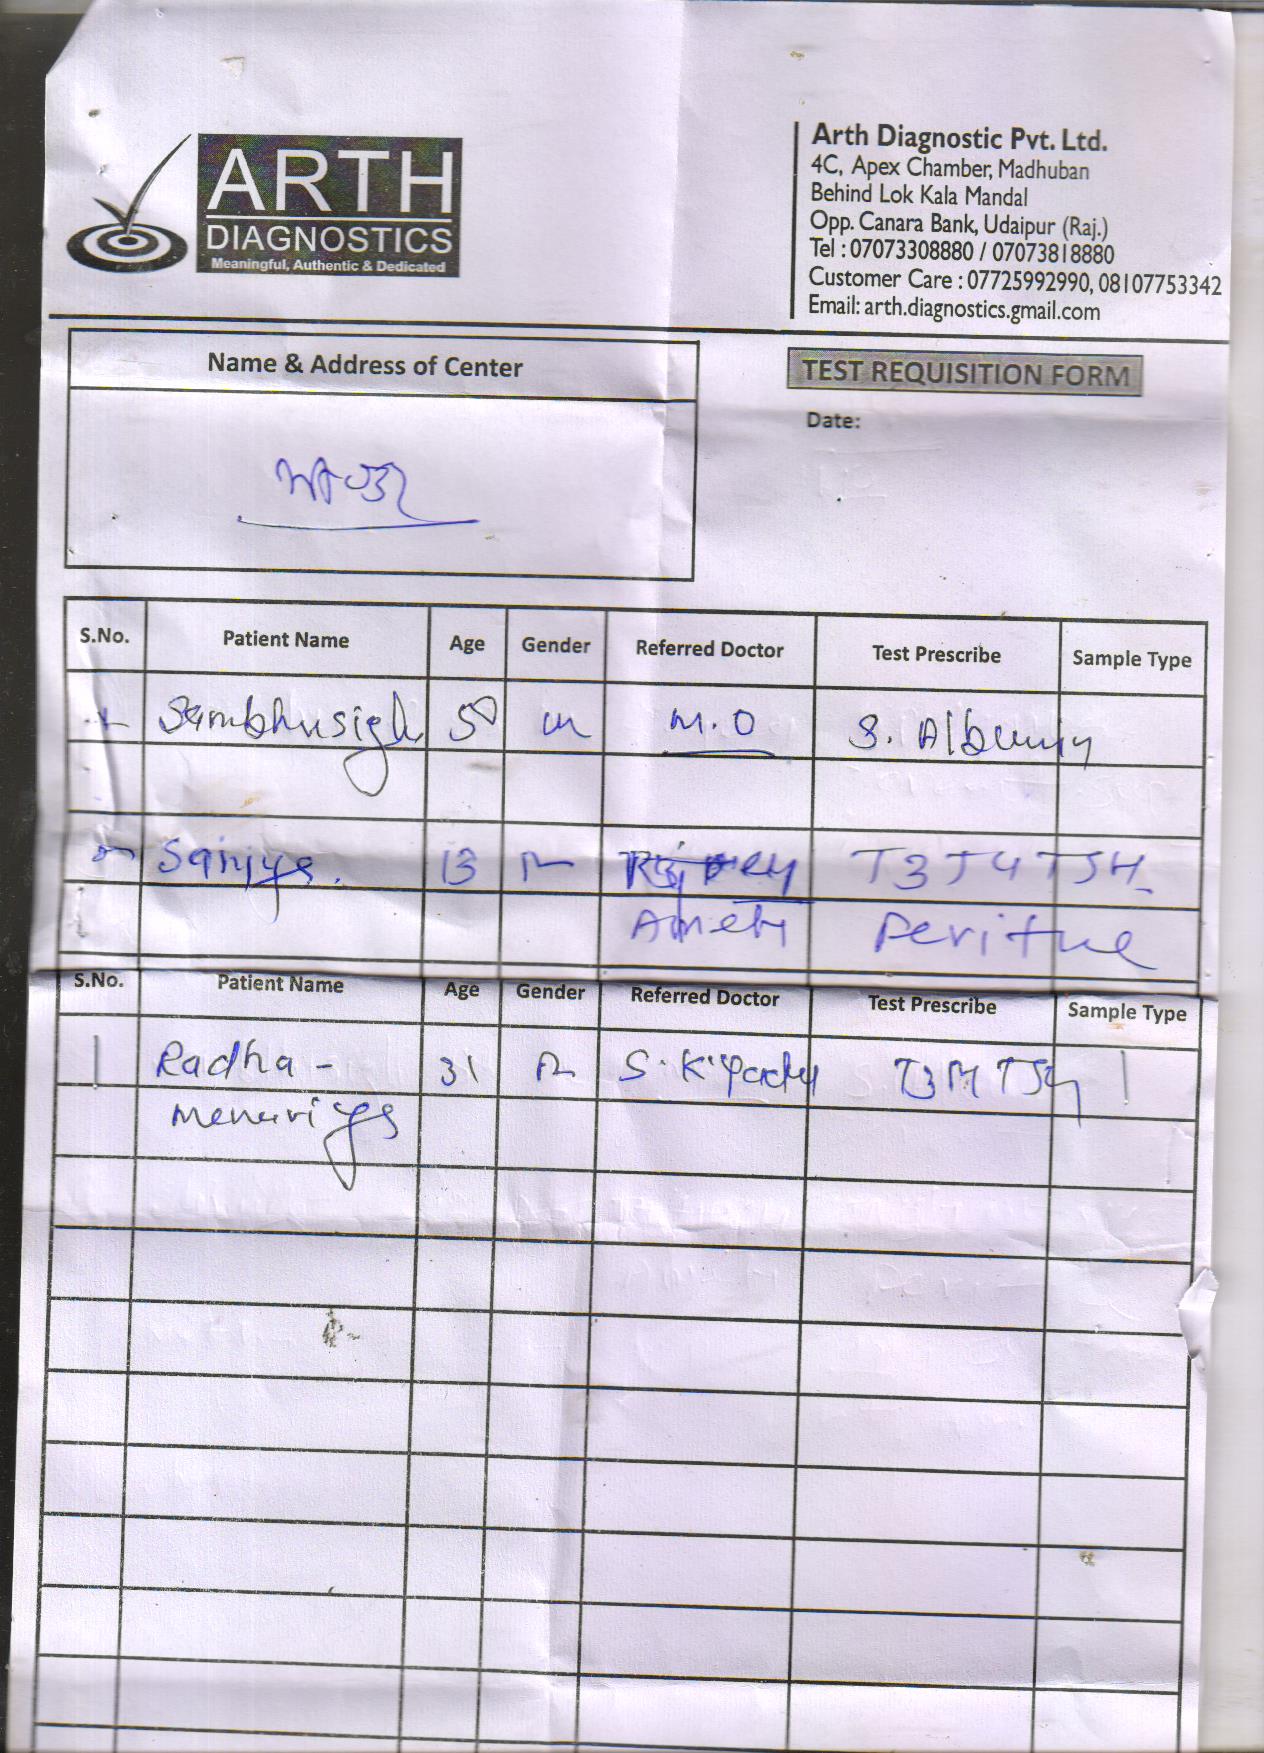 ARTH
DIAGNOSTICS
Meaningful, Authentic & Dedicated
Arth Diagnostic Pvt. Ltd.
4C, Apex Chamber, Madhuban
Behind Lok Kala Mandal
Opp. Canara Bank, Udaipur (Raj.)
Tel : 07073308880 / 07073818880
Customer Care : 07725992990, 08107753342
Email: arth.diagnostics.gmail.com
Name & Address of Center
TEST REQUISITION FORM
Date:
S.No. Patient Name Age Gender Referred Doctor Test Prescribe Sample Type
Sambhusigh 50 m M.O S. Albumin
Saniya. 13 T3 T4 TSH
S.No. Patient Name Age Gender Referred Doctor Test Prescribe Sample Type
1 Radha - 31 S.K. T3 T4 TSH
menariya